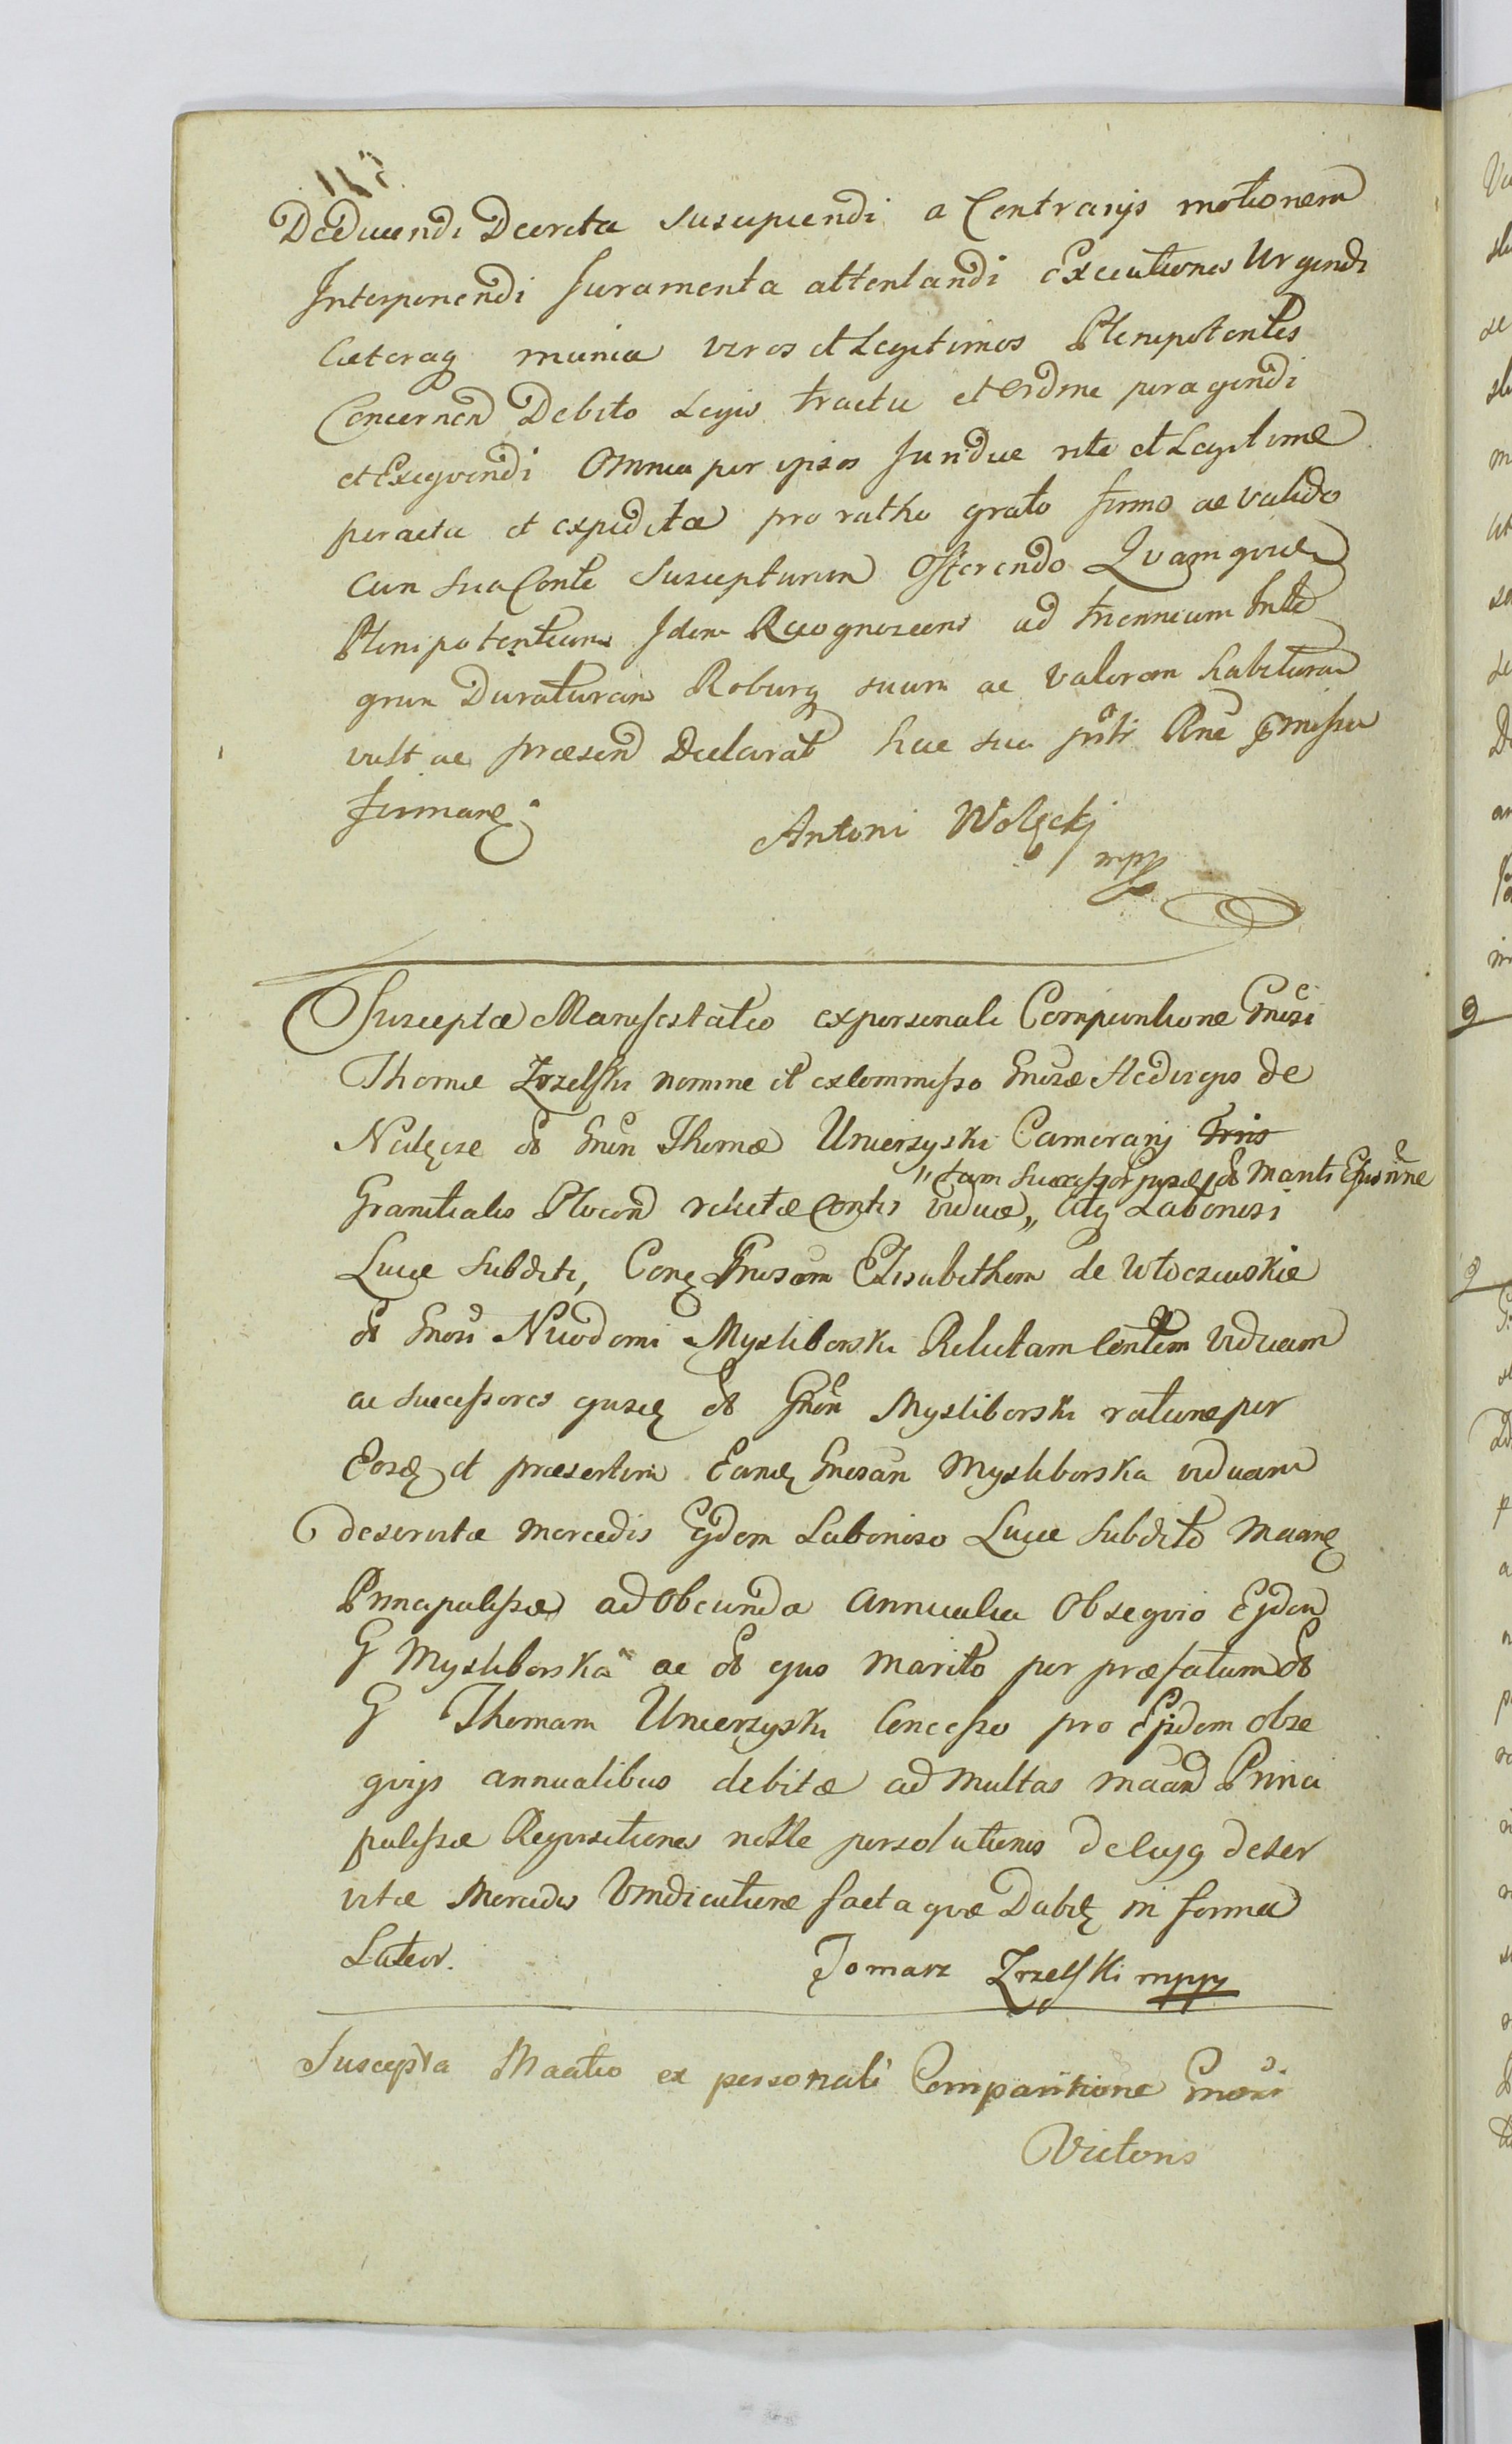 Deducendi Decreta suscipiendi a Contrarijs motionem
Interponendi Juramenta attentandi Executiones Urgendi
Caeteraq munia veros et Legitimos Plenipotentes
Concernen Debito Legis tractu et ordine peragendi
et Exeqvendi Omnia per ipsos Juridice rite et Legitime
peracta et expedita pro ratho grato firmo ac valido
cum sua Conte Suscepturum Offerendo Qvamqvidem
Plenipotentiam Idem Recognoscens ad triennium Inte
grum Duraturam Roburq suum ac Valorem habituram
vult ac praesen Declarat hac sua pnti Rne pmissa
firmante
Antoni Wolęcki
mpp
Suscepta Manifestatio ex personali Comparitione Gnosi
Thomae Zrzelski nomine et ex Commisso Gnosae Hedvigis de
Nałęcze olim Gnosi Thomae Umierzyski Camerarij
"tam Successor ipsae olim Mariti Ejus nne
Granitialis Plocen relictae Contis viduae" atq Laboriosi
Lucae Subditi, Contra Gnosam Elisabetham de Włoczewskie
olim Gnosi Nicodemi Mysliborski Relictam Contem Viduam
ac Successores ejusdem olim Gnosi Mysliborski ratione per
Eosdem et praesertim Eandem Gnosam Mysliborska viduam
deservitae mercedis Ejdem Laborioso Lucae Subdito Maantis
Principalissae ad Obeunda Annualia Obseqvio Ejdem
G Mysliborska ac olim ejus Marito per praefatum olim
G Thomam Umierzyski Concesso pro Ejsdem obse
qvijs annualibus debitae ad Multas maan Princi
palissae Reqvisitiones nolle persolutionis de Cujq deser
vitae Mercedis Vindicatione facta qvae Dabitur in forma
Latior.
Tomasz Zrzelski mppr
Suscepta Maatio ex personali Comparitione Gnosi
Victoris